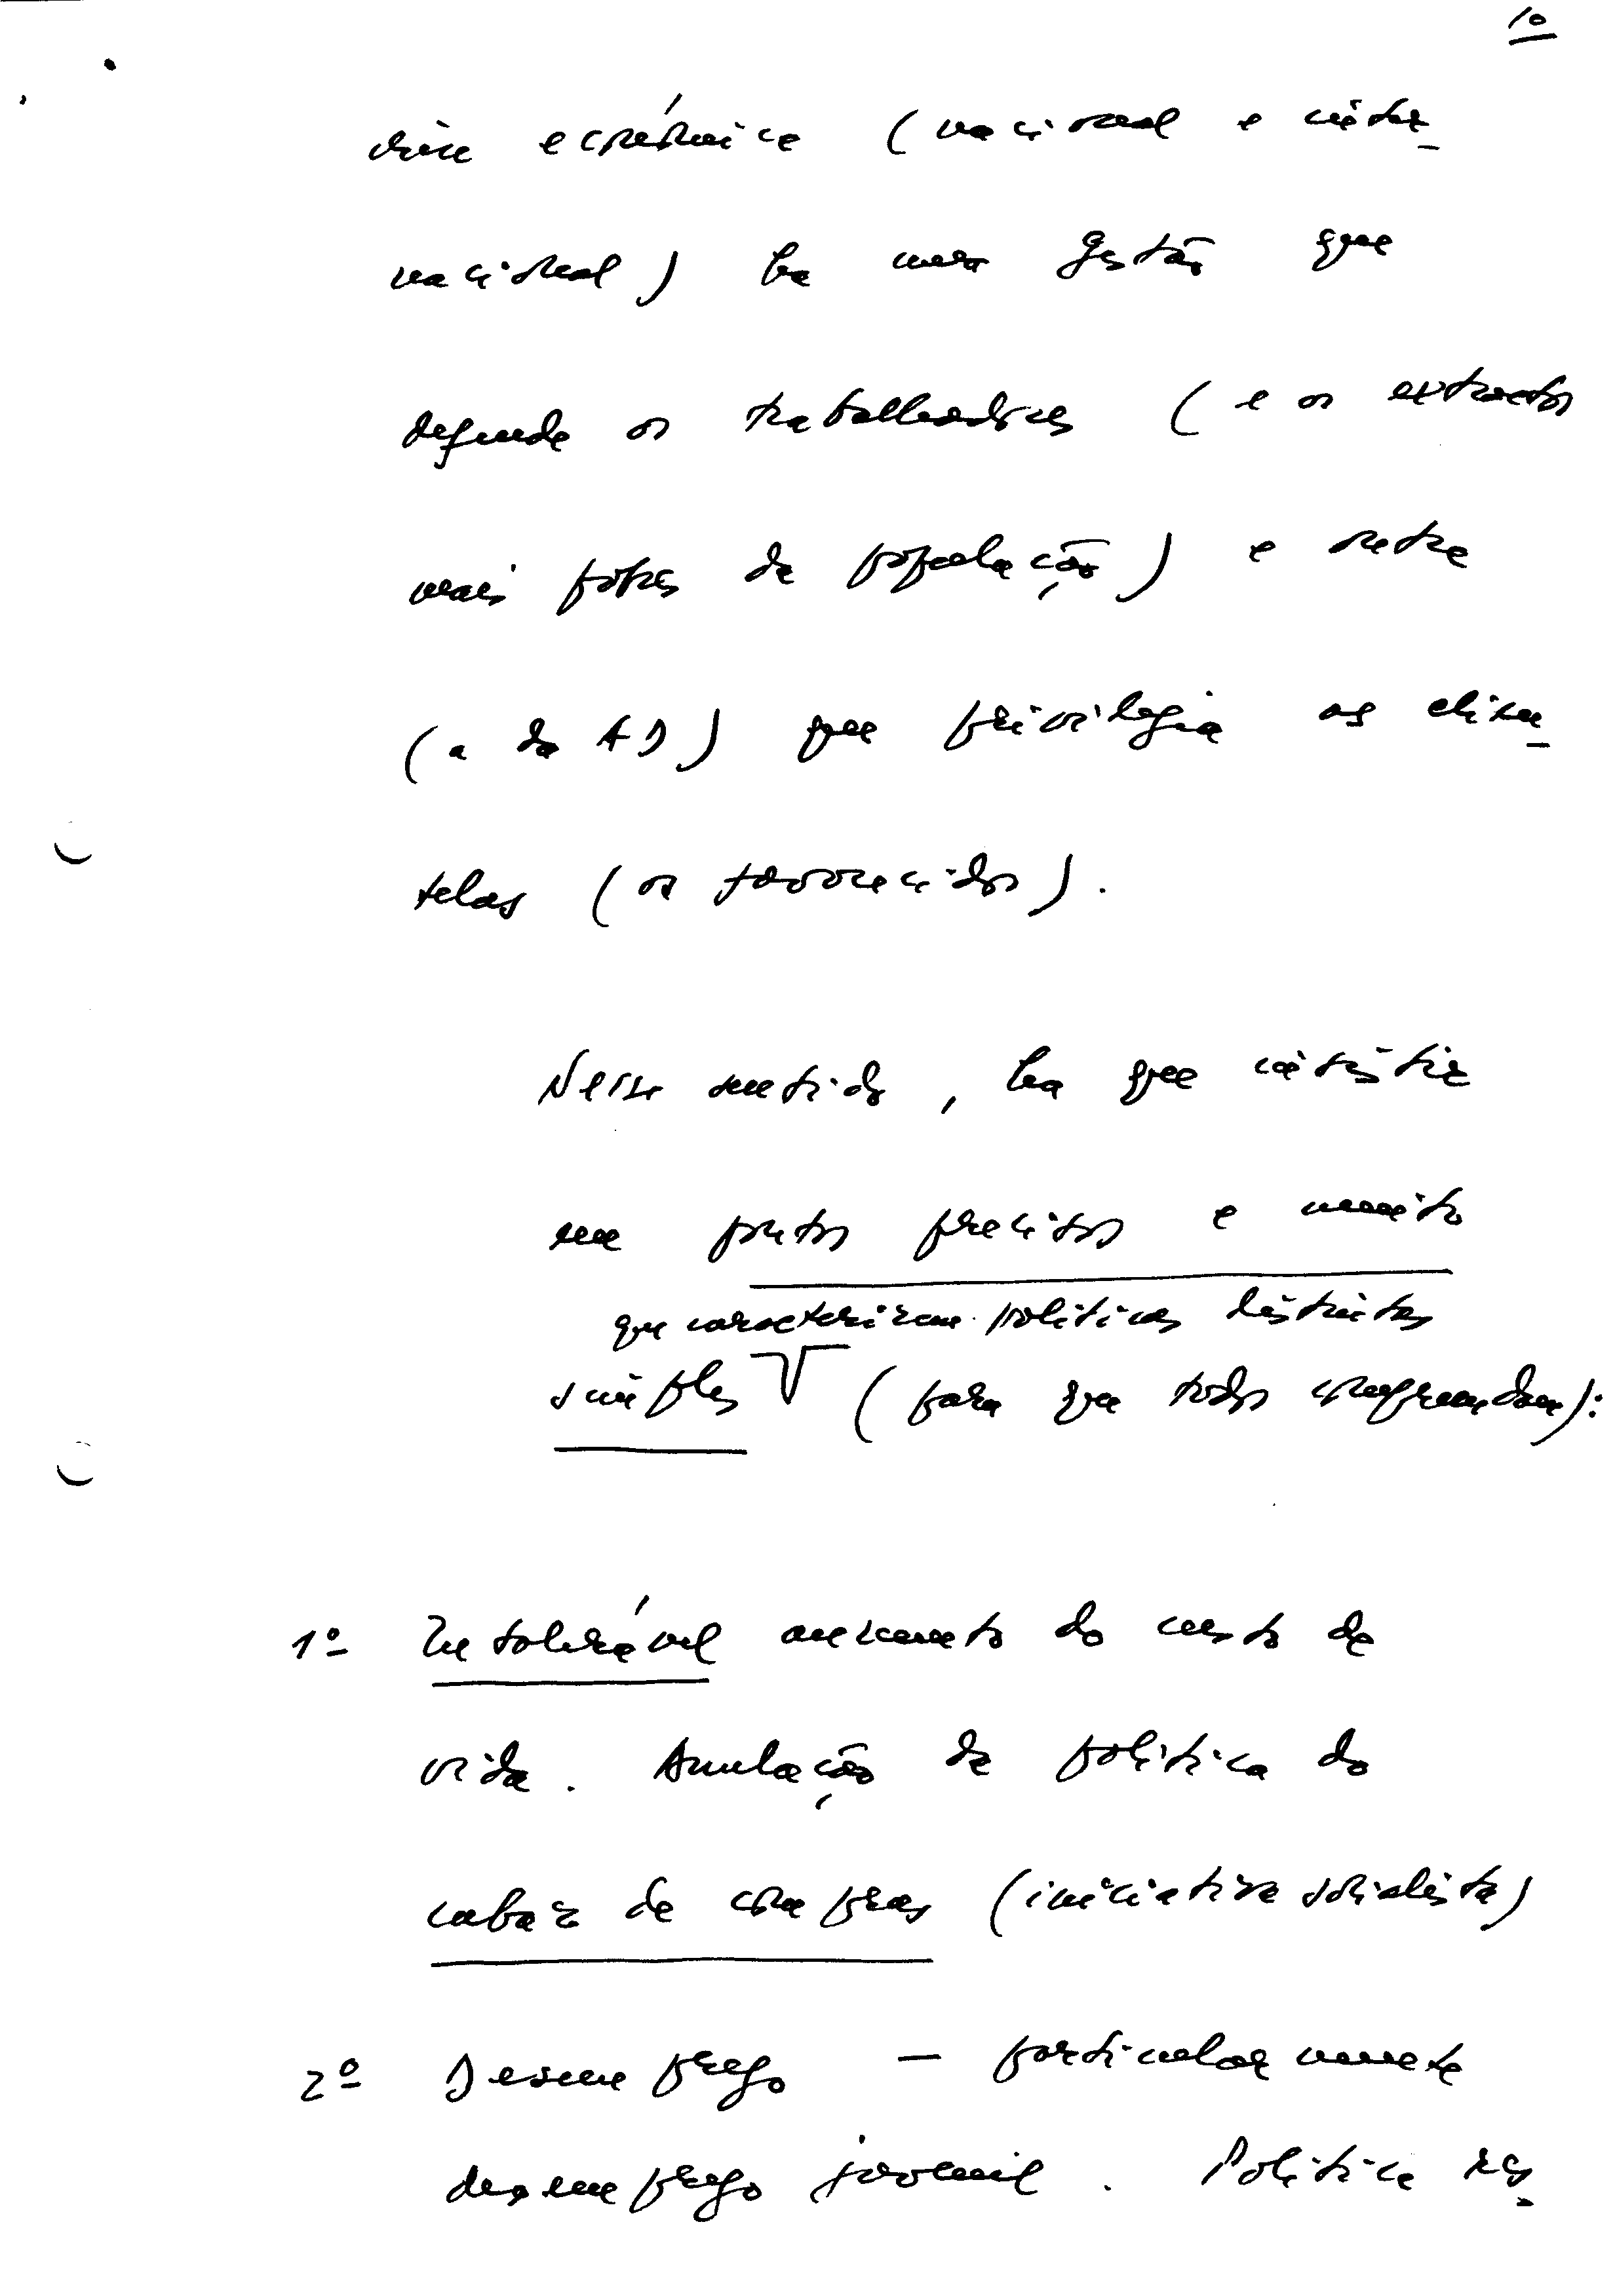 10
crise económica (nacional e inter-
nacional) há uma gestão que
defende os trabalhadores (e os extractos
mais pobres da população) e outra
(a da AD) que privilegia as clien-
telas (os favorecidos).
Nesse sentido, há que insistir
em pontos precisos e muito
que caracterizem políticas distintas
simples (para que todos compreendam):
1º Intolerável aumento do custo da
vida. Anulação da política do
cabaz de compras (iniciativa socialista)
2º Desemprego — particularmente
desemprego juvenil. Política res-